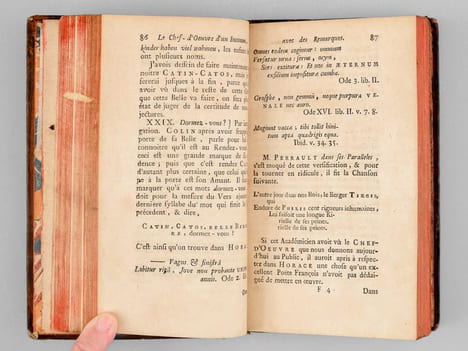 86 Le Chef-d'Oeuvre d'un Inconnu,
kinder haben viel nahmen, les enfans
ont plusieurs noms.
J'avois dessein de faire maintenant
noître CATIN-CATOS, mais
jusques à la fin, parce que
avoir vû dans le reste de cette
que cette Belle va faire, on sera
état de juger de la certitude de nos
jectures.
XXIX. Dormez-vous?] Par
gation. COLIN après avoir frappé
porte de sa Belle, parle pour lui
connoître qu'il est au Rendez-vous
ceci est une grande marque de sa
dence; puis que c'est rendre
d'autant plus certaine, que celui qui
pe à la porte est son Amant. Il
marquer qu'à ces mots dormez-vous
doit pour la mesure du Vers ajouter
dernière syllabe du mot qui finit le
précédent, & dire,
CATIN, CATOS, BELLE BERGE-
RE, dormez-vous?
C'est ainsi qu'on trouve dans HORACE
—— Vagus & sinistrâ
Labitur ripâ, Jove non probante UXO-
Ode 2.
avec des Remarques. 87
Omnes eodem cogimur: omnium
Versatur urna: serius, ocyus,
Sors exitura: Et nos in ÆTERNUM
exsilium impositura cumbæ.
Ode 3. lib. II.
Grosphe, non gemmis, neque purpurâ VE-
NALE nec auro.
Ode XVI. lib II. v. 7. 8.
Mugiunt vaccæ; tibi tollit hinni-
tum apta quadrigis equa.
Ibid. v. 34. 35.
M. PERRAULT dans ses Paralleles,
s'est moqué de cette versification, & pour
la tourner en ridicule, il fit la Chanson
suivante.
L'autre jour dans nos Bois, le Berger TIRCIS,
qui
Endure de PHILIS cent rigueurs inhumaines,
Lui faisoit une longue Ki-
rielle de ses peines.
rielle de ses peines.
Si cet Académicien avoit vû le CHEF-
D'OEUVRE que nous donnons aujour-
d'hui au Public, il auroit apris à respec-
ter dans HORACE une chose qu'un ex-
cellent Poëte François n'avoit pas dédai-
gné de mettre en œuvre.
F 4 Dans